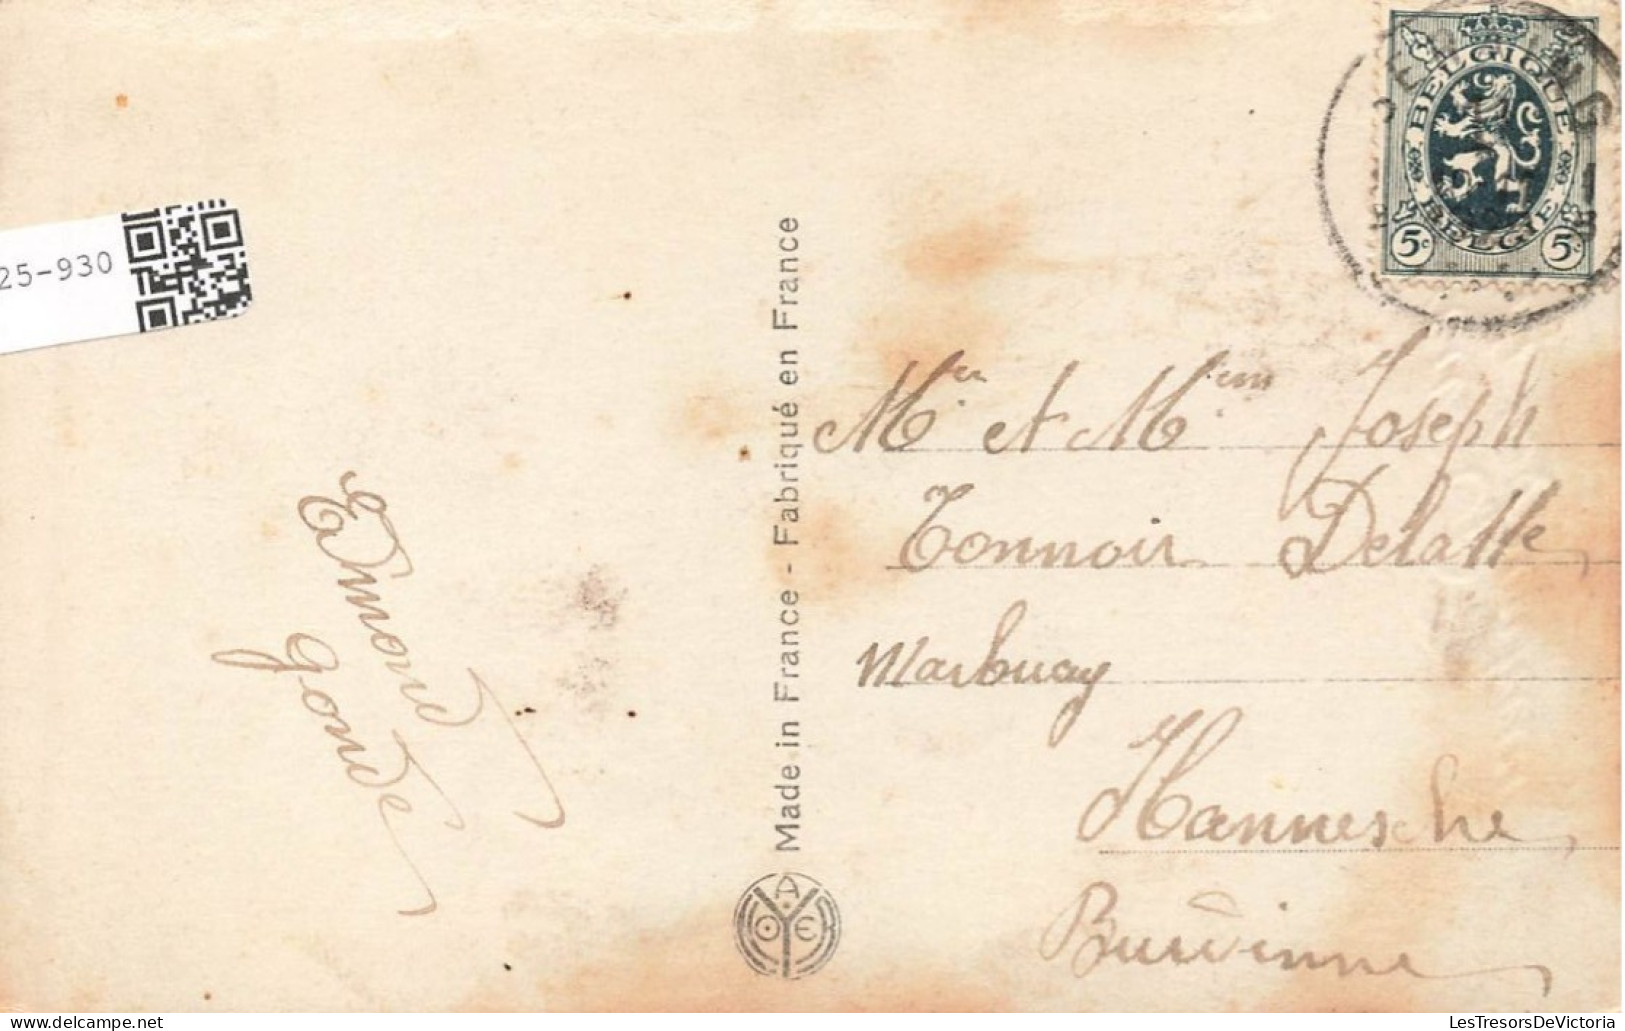 25-930
Edmond
Gonde
Made in France - Fabriqué en France
A
O E
BELGIQUE
BELGIE
5c 5c
Mr et Mme Joseph
Tonnoir Delatte
Marbuay
Hannesche
Burdinne
LesTresorsDeVictoria